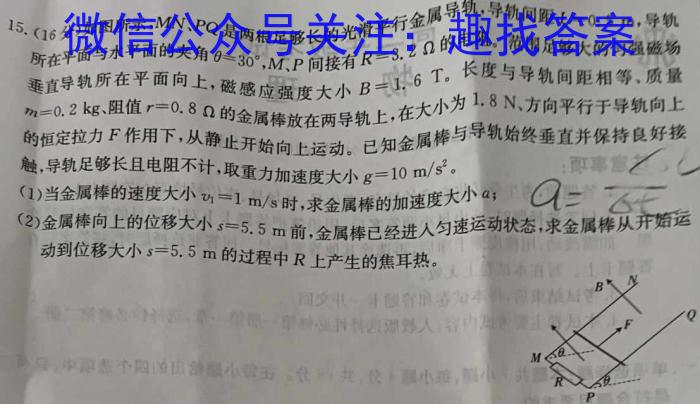 微信公众号关注：趣找答案
15.(16分)如图所示,MN、PQ是两根足够长的光滑平行金属导轨,导轨间距 m,导轨
所在平面与水平面的夹角θ=30°,M、P间接有R=3.2 Ω的 强磁场
垂直导轨所在平面向上,磁感应强度大小B=1.6 T。长度与导轨间距相等、质量
m=0.2 kg、阻值r=0.8 Ω的金属棒放在两导轨上,在大小为1.8 N、方向平行于导轨向上
的恒定拉力F作用下,从静止开始向上运动。已知金属棒与导轨始终垂直并保持良好接
触,导轨足够长且电阻不计,取重力加速度大小g=10 m/s²。
(1)当金属棒的速度大小v₁=1 m/s时,求金属棒的加速度大小a;
a=
(2)金属棒向上的位移大小s=5.5 m前,金属棒已经进入匀速运动状态,求金属棒从开始运
动到位移大小s=5.5 m的过程中R上产生的焦耳热。
B N
Q
F
M θ
R θ
P